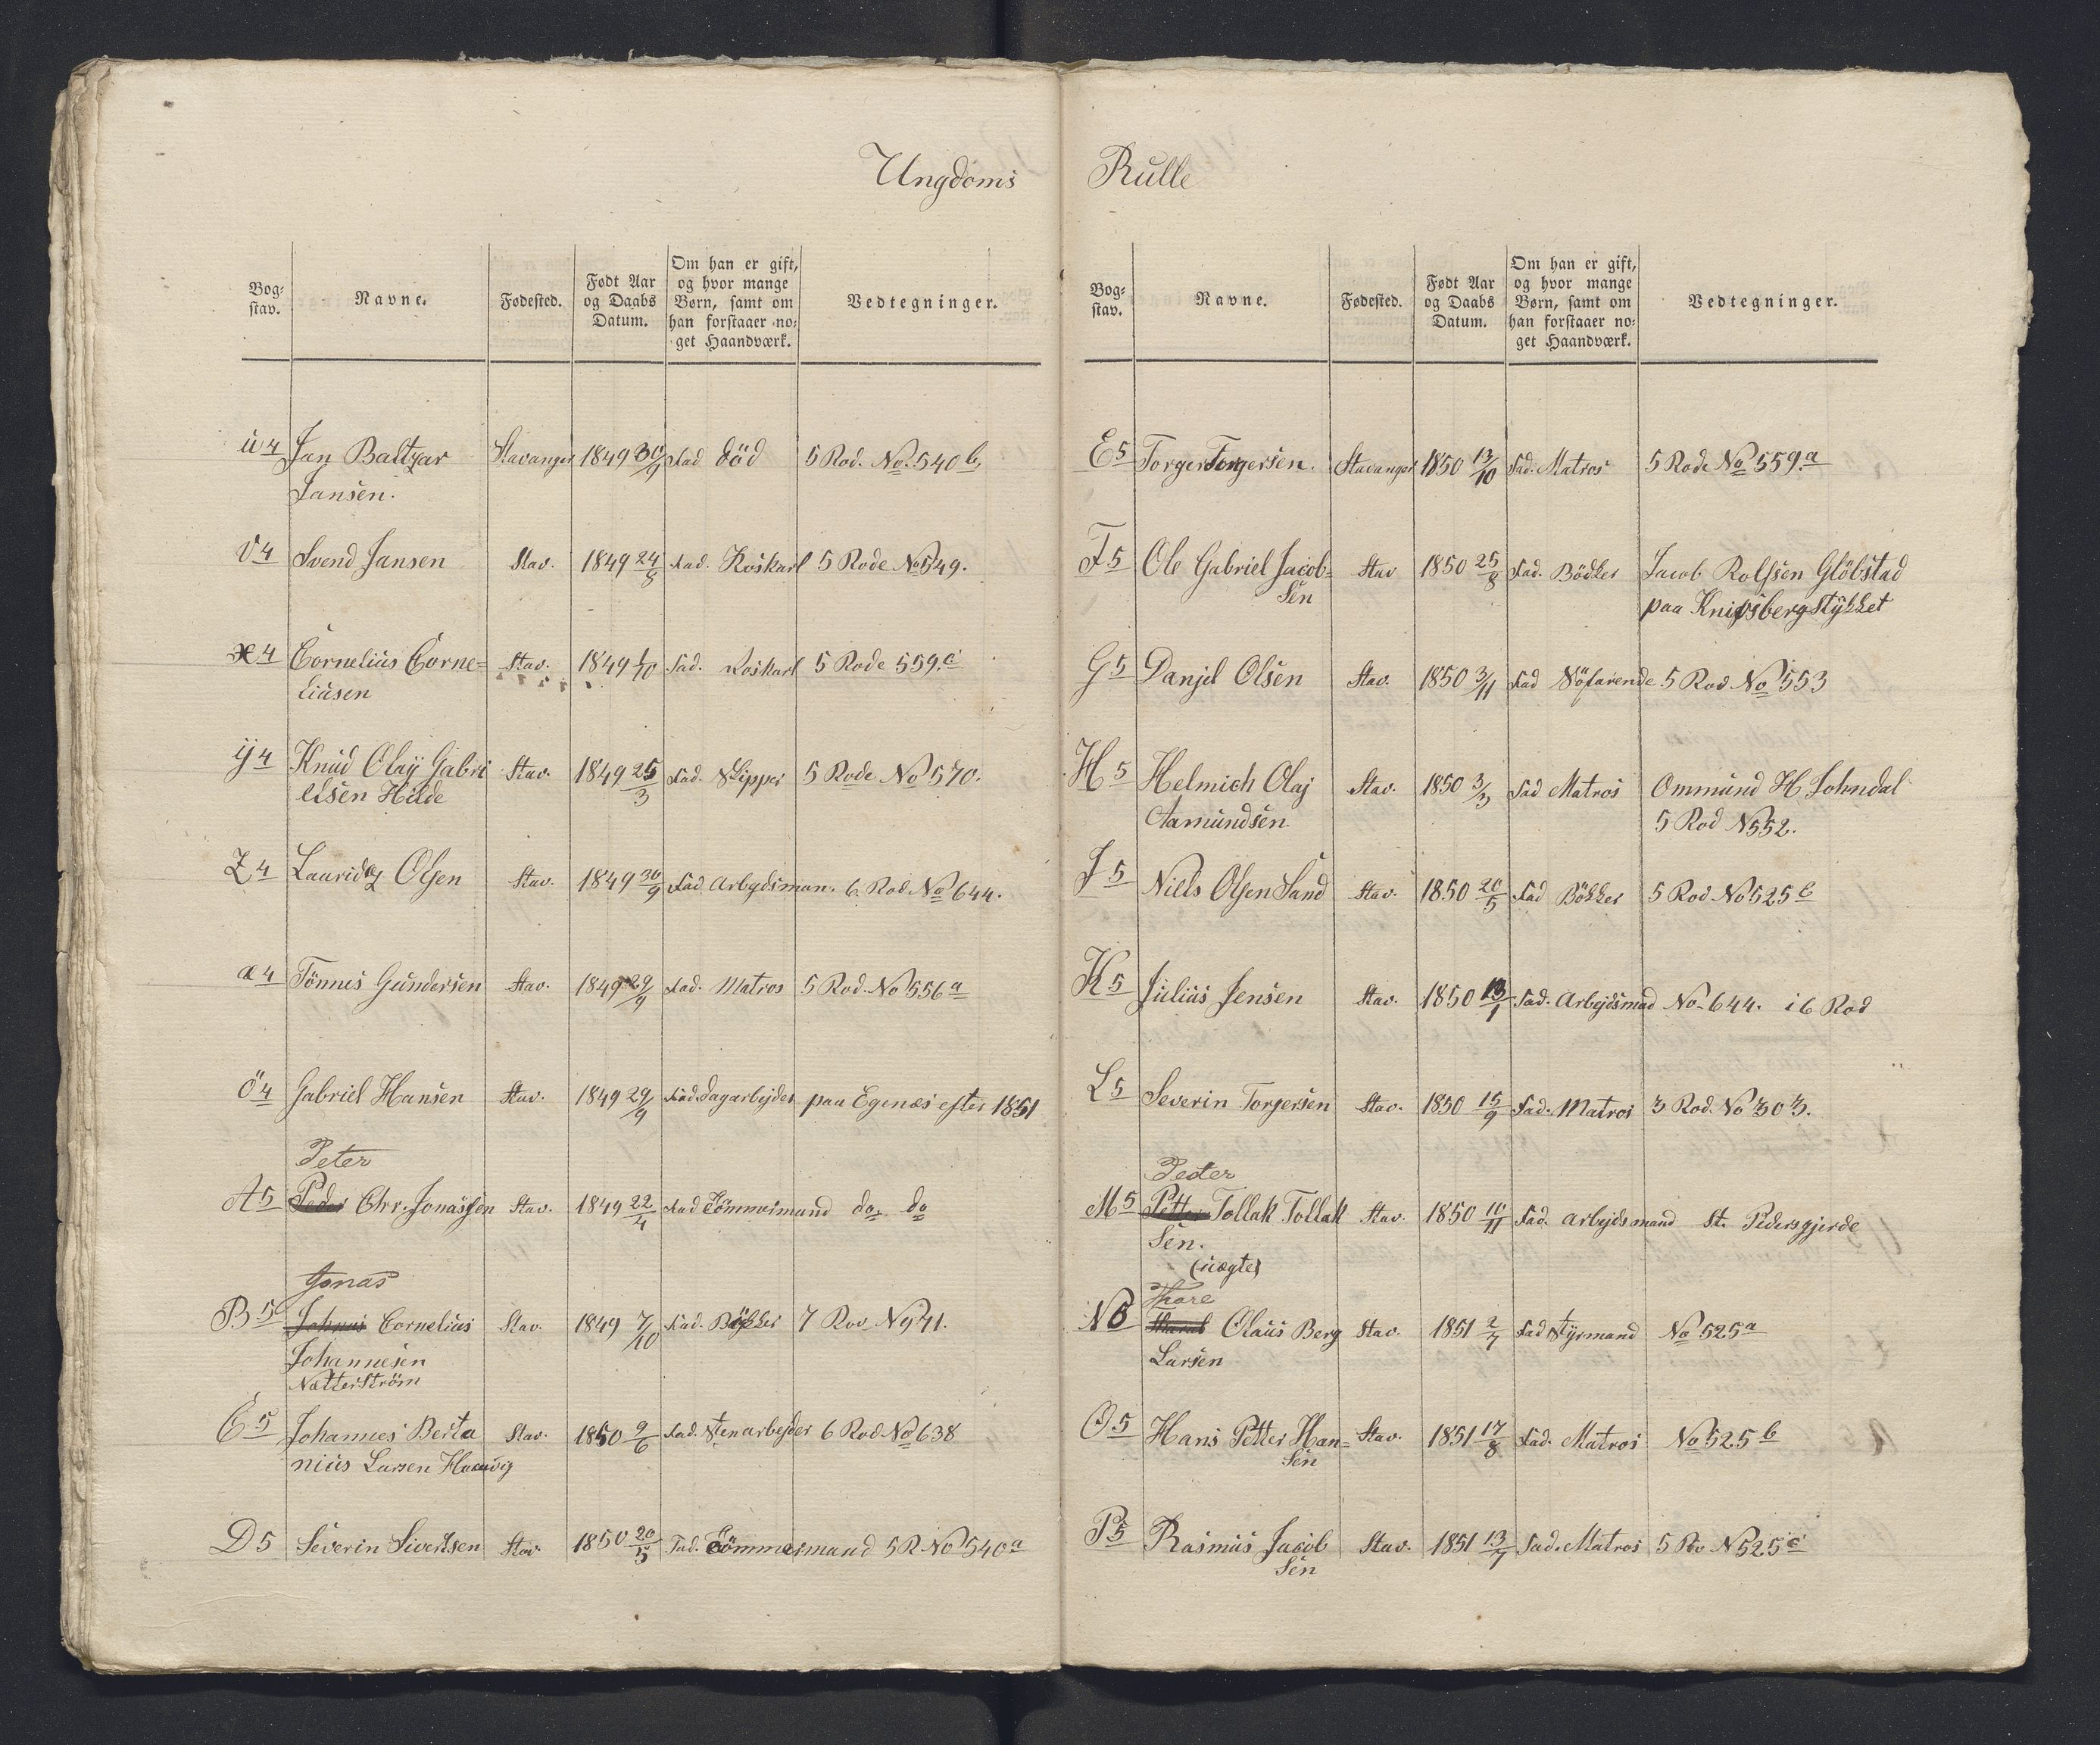 Ungdoms Rulle
Bog-
stav.
Navne.
Fødested.
Født Aar
og Daabs
Datum.
Om han er gift,
og hvor mange
Børn, samt om
han forstaaer no-
get Haandværk.
Vedtegninger.
u 4 Jan Baltzar Stavanger 1849 30/9 Fad död 5 Rod. No. 540 b.
Jansen.
V 4 Svend Jansen Stav. 1849 24/8 Fad. Koskarl 5 Rode No 549.
x 4 Cornelius Corne= Stav. 1849 1/10 Fad. Koskarl 5 Rode 559. c
liusen
ÿ 4 Knud Olaÿ Gabri Stav. 1849 25/3 Fad. Skipper 5 Rode No 570.
elsen Hilde
Z 4 Lauridtz Olsen Stav. 1849 30/9 Fad Arbydsman. 6 Rod No 644.
æ 4 Tönnes Gundersen Stav. 1849 29/9 Fad. Matros 5 Rod. No 556 a
ö 4 Gabriel Hansen Stav. 1849 29/9 Fad. Dagarbejder paa Egenæs efter 1851
Peter
A 5 Peder Chr. Jonassen Stav. 1849 22/4 Fad Tömmermand do. do
Jonas
B 5 Johnas Cornelius Stav. 1849 7/10 Fad. Bökker 7 Rov N 941.
Johannesen
Natterström
C 5 Johannes Berta Stav. 1850 9/6 Fad. Stenarbejder 6 Rod No 638
nius Larsen Haavig
D 5 Severin Sivertsen Stav 1850 20/5 Fad. Tömmermand 5 R No 540 a
Bog-
stav.
Navne.
Fødested.
Født Aar
og Daabs
Datum.
Om han er gift,
og hvor mange
Børn, samt om
han forstaaer no-
get Haandværk.
Vedtegninger.
E 5 Torger Torgersen. Stavanger 1850 13/10 Fad. Matros 5 Rode No 559. a
F 5 Ole Gabriel Jacob= Stav 1850 25/8 Fad. Bödker Jacob Rolfsen Glöbstad
sen paa Knipsbergstÿkket
G 5 Danjel Olsen Stav. 1850 3/11 Fad Söfarende 5 Rod No 553
H 5 Helmich Olaj Stav. 1850 3/3 Fad Matros Ommund H Johndal
Aamundsen. 5 Rod N 552.
J 5 Niels Olsen Sand Stav. 1850 20/5 Fad Bökker 5 Rod No 525 c
K 5 Julius Jensen Stav. 1850 13/1 Fad. Arbejdsmad No. 644. i 6 Rod
L 5 Severin Torgersen Stav. 1850 15/9 Fad. Matros 3 Rod. No 303.
Peder
M 5 Petter Tollak Tollak Stav. 1850 10/11 Fad. Arbejdsmand St. Pedersgjerde
sen.
(uægte)
Thore
N 5 Olaus Berg Stav. 1851 2/7 Fad Stÿrmand No 525 a
Larsen
O 5 Hans Petter Han= Stav. 1851 17/8 Fad. Matros No 525 b
sen
P 5 Rasmus Jacob Stav. 1851 13/7 Fad. Matros 5 Ro N 525 c
sen